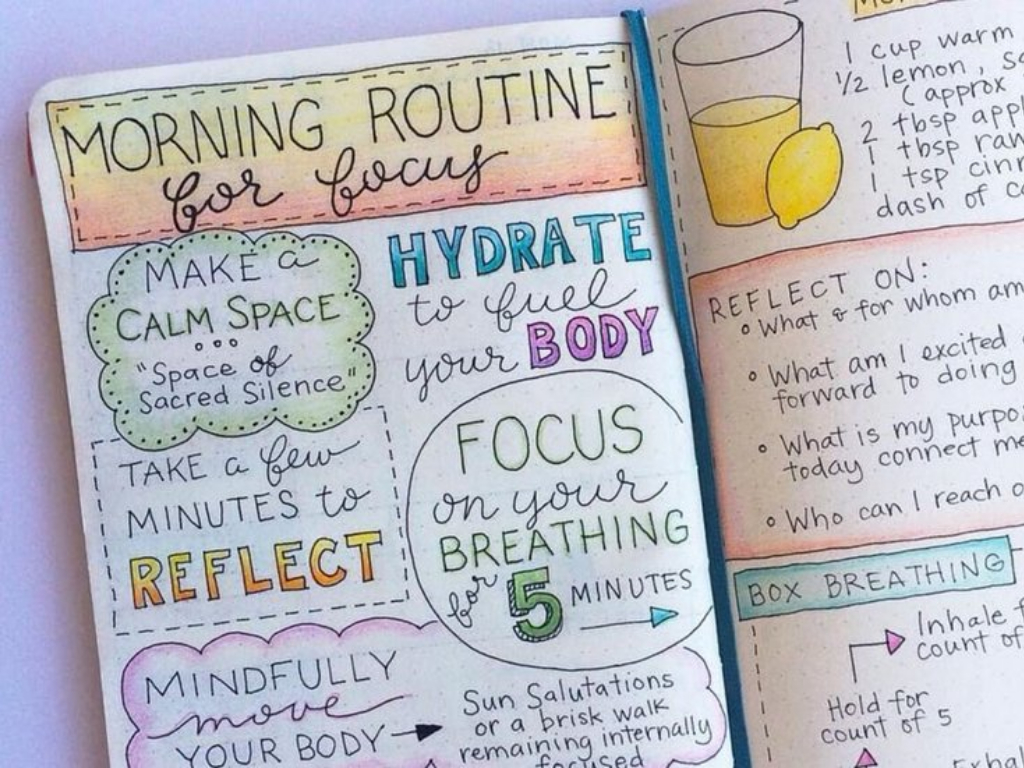 MORNING ROUTINE
for focus
MAKE a
CALM SPACE
"Space of
Sacred Silence"
HYDRATE
to fuel
your BODY
TAKE a few
MINUTES to
REFLECT
FOCUS
on your
BREATHING
for 5 MINUTES
MINDFULLY
move
YOUR BODY
Sun Salutations
or a brisk walk
remaining internally
focused
1 cup warm
1/2 lemon,
(approx
2 tbsp
1 tbsp raw
1 tsp
dash of
REFLECT ON:
• What & for whom am
• What am I excited
forward to doing
• What is my
today connect me
• Who can I reach
BOX BREATHING
Inhale
count of
Hold for
count of 5